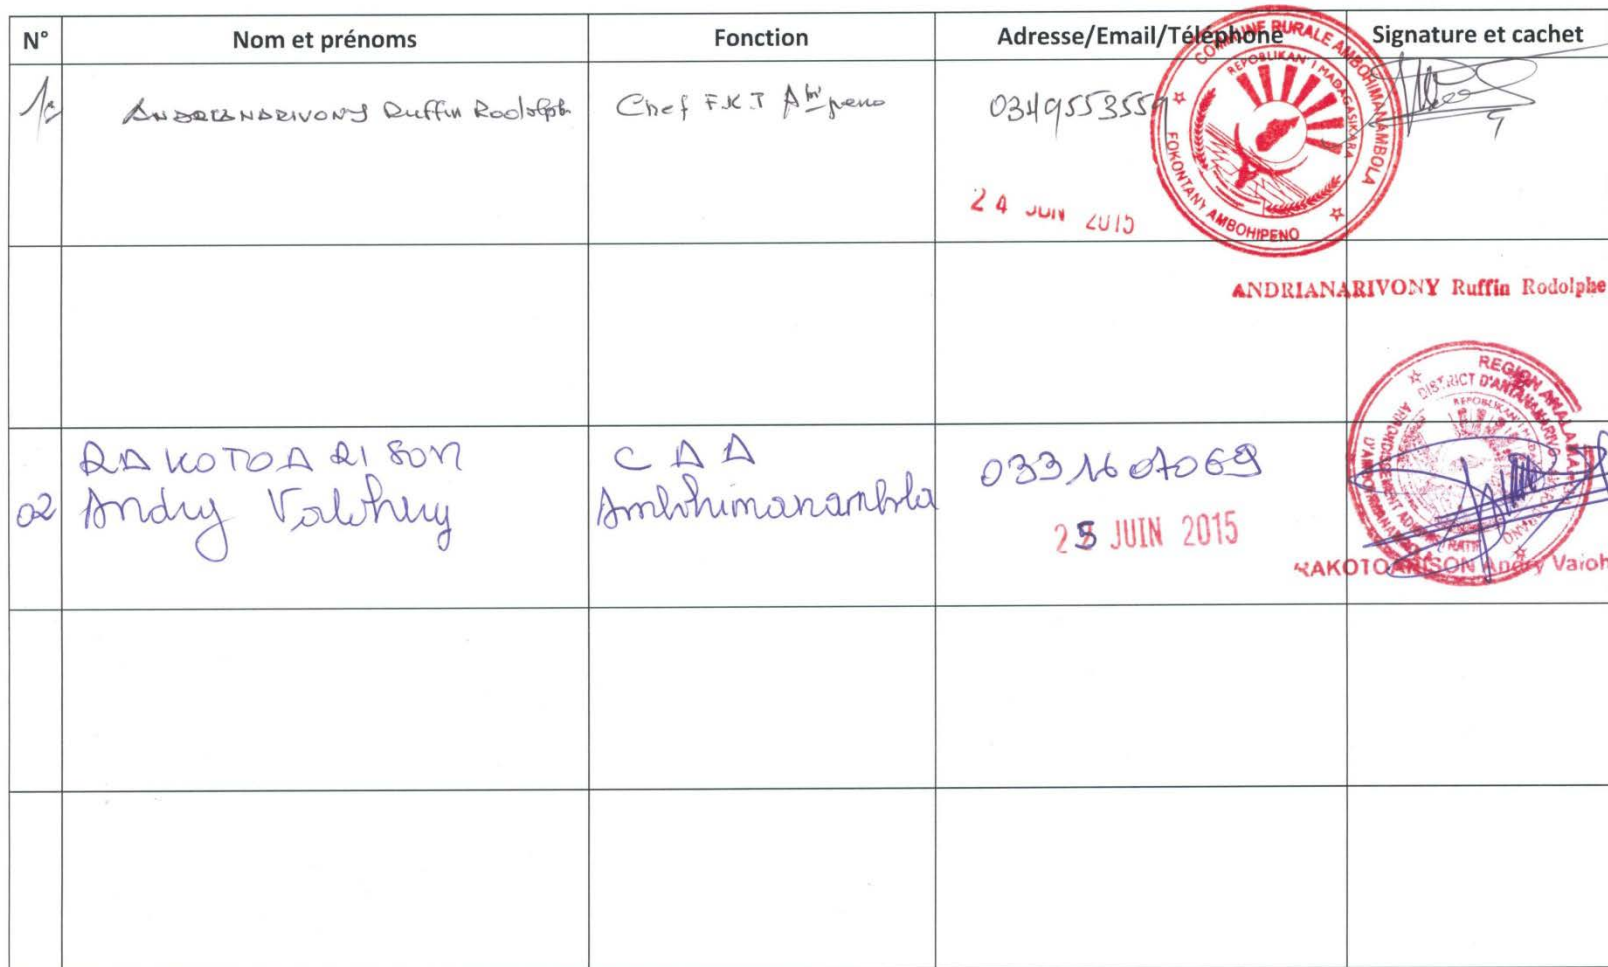 N° Nom et prénoms Fonction Adresse/Email/Téléphone Signature et cachet
ANDRIANARIVONY Ruffin Rodolphe Chef F.K.T 0349553559
COMMUNE RURALE AMBOHIMANAMBOLA
REPOBLIKAN'I MADAGASIKARA
FOKONTANY AMBOHIPENO
24 JUIN 2015
ANDRIANARIVONY Ruffin Rodolphe
REGION ANALAMANGA
DISTRICT D'ANTANANARIVO
02 RAKOTOARISON CAA 0331607069
Andry Valohery Ambohimanambola
25 JUIN 2015
RAKOTOARISON Andry Valoh